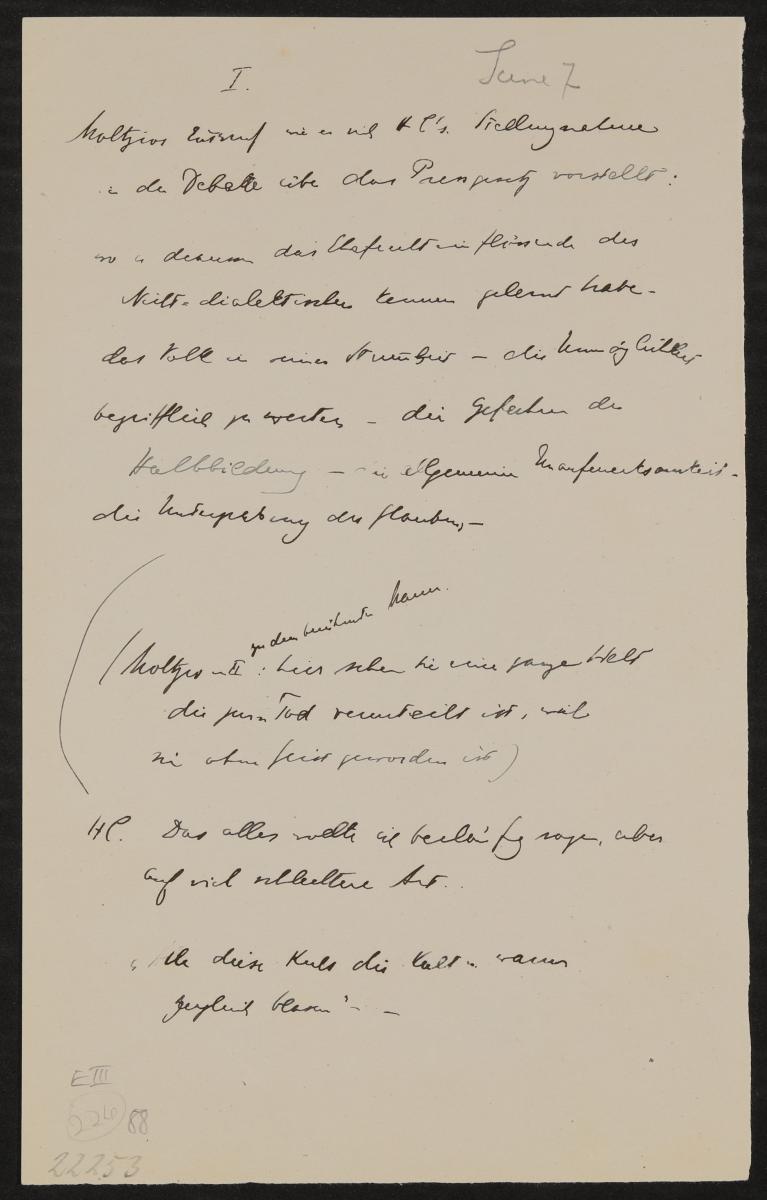 I.
Scene 7
Moltzios Entwurf wie er sich H C's. Stellungnahme
in der Debatte über das Pressgesetz vorstellt:
wo er draussen das des
Nicht-dialektischen kennen gelernt habe –
das Volk in seiner Stummheit – die Unmöglichkeit
begrifflich zu werden – die Gefahren der
Halbbildung – die allgemeine Unaufmerksamkeit –
die Untergrabung des Glaubens, –
zu dem berühmten Mann.
(Moltzio II : hier sehen Sie eine ganze Welt
die zum Tod verurteilt ist, weil
sie ohne Geist geworden ist)
HC. Das alles wollte ich beiläufig sagen, aber
auf viel schlechtere Art.
„Alle diese Kerls die kalt u. warm
zugleich blasen" – –
E III
226
88
22253